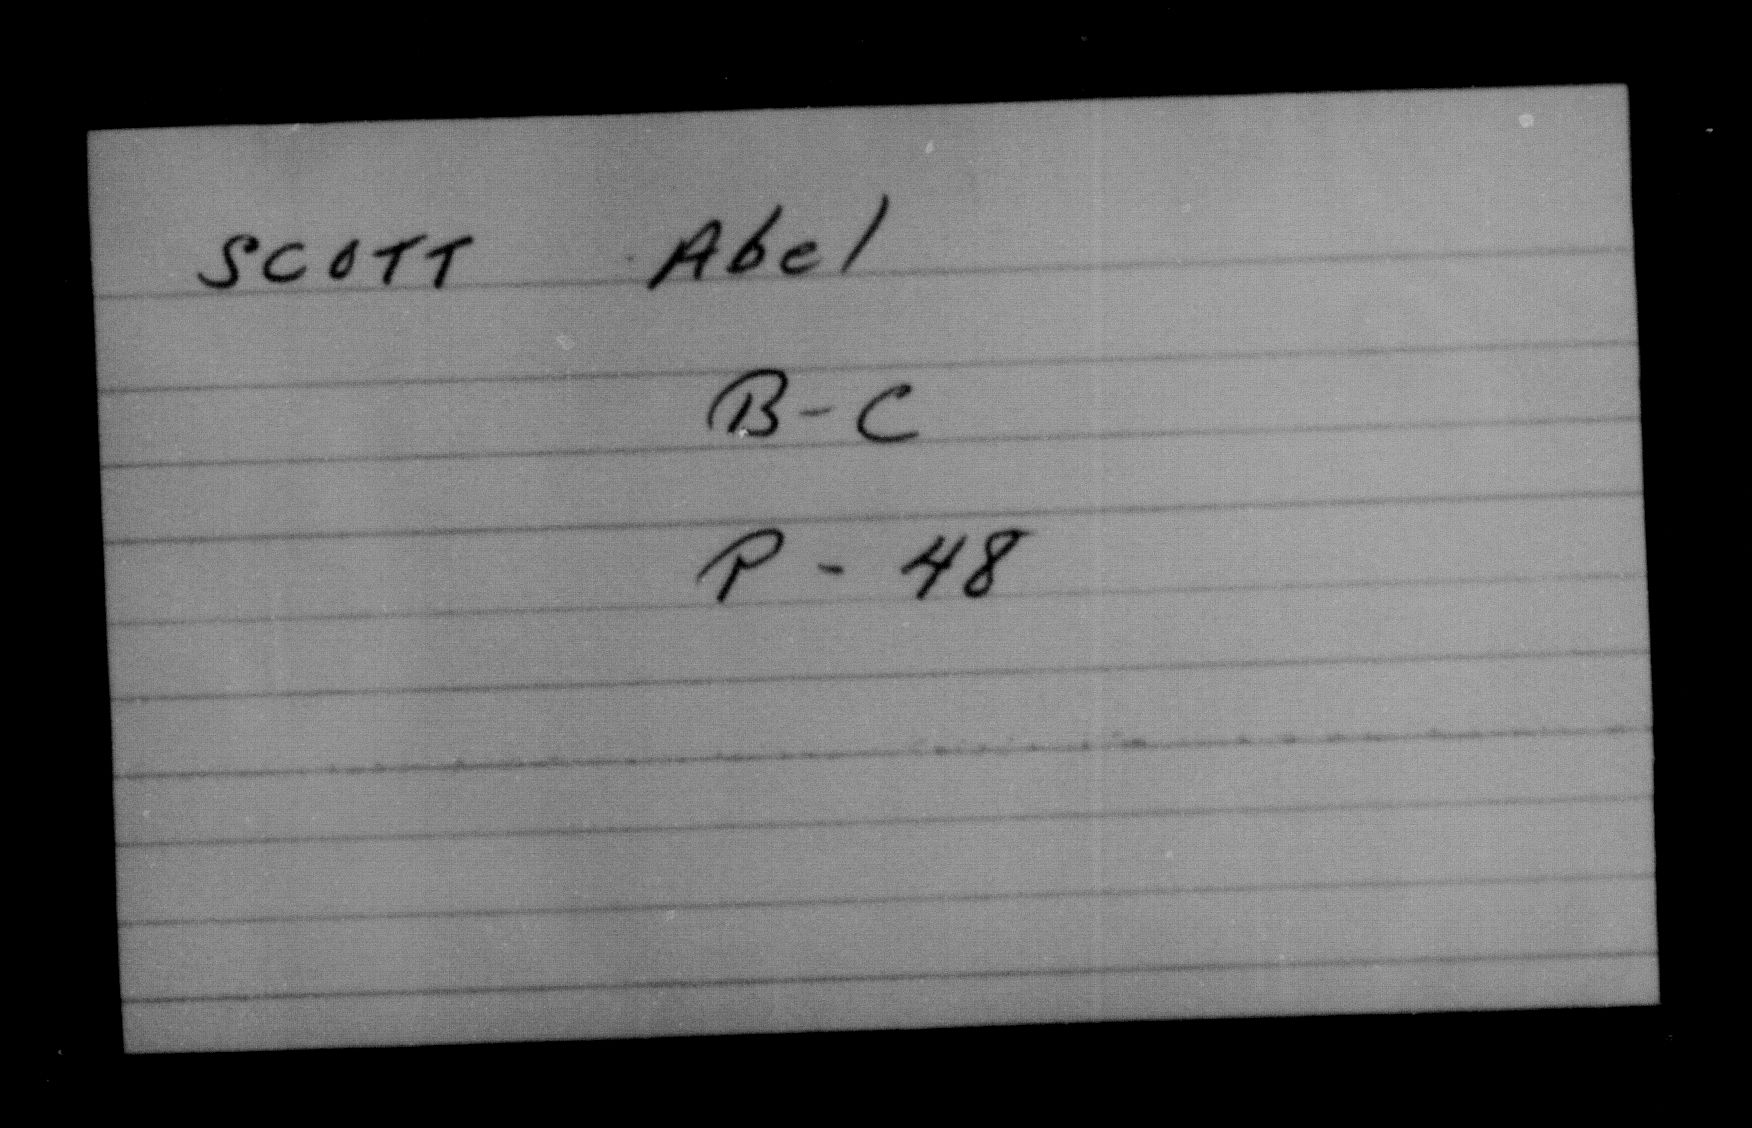 SCOTT Abel
B-C
P - 48